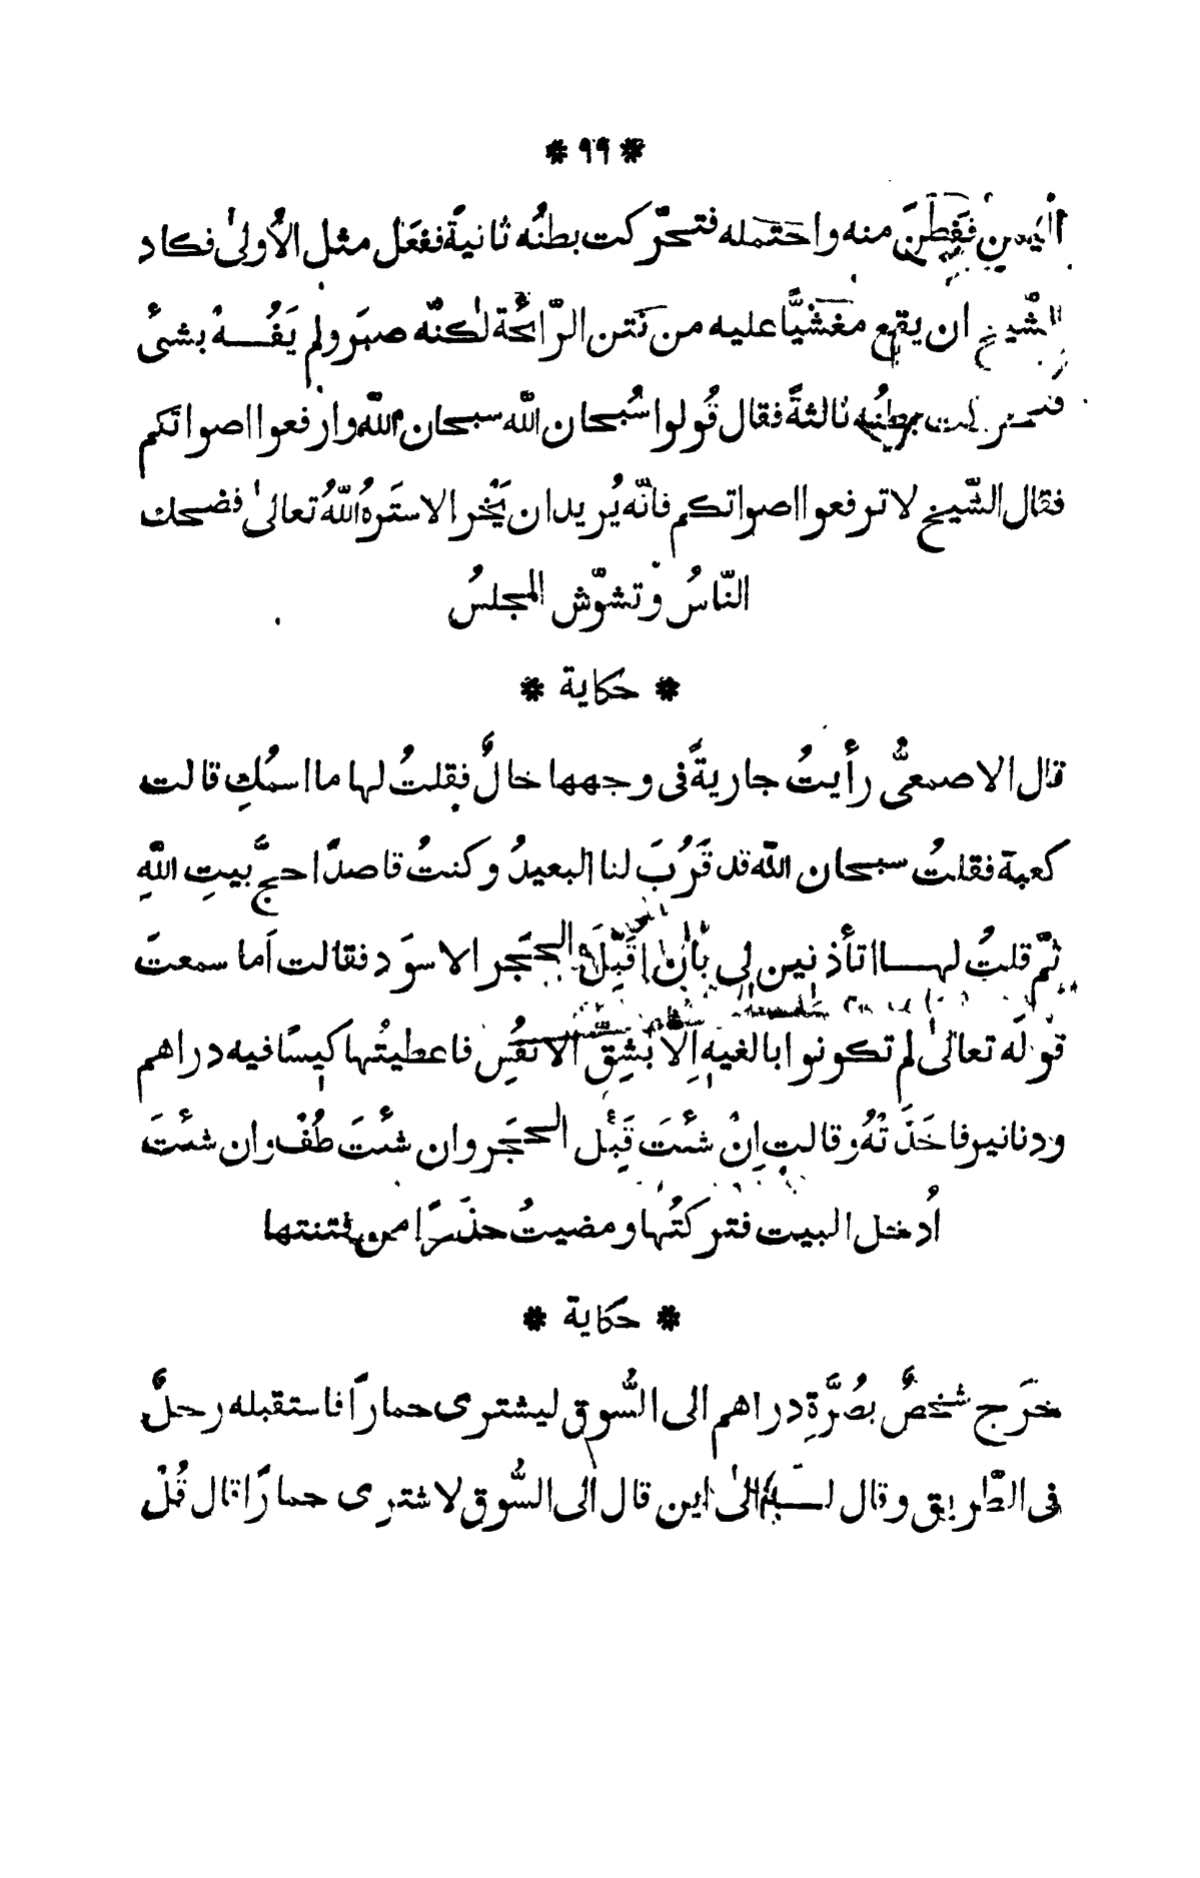 * ٩٩ *
اليمين ففَطِنَ منه واحتمله فتحرّكت بطنُه ثانيةً ففعَل مثل الأولىٰ فكاد
الشّيخ ان يقع مغشيًّا عليه من نَتن الرّائحة لٰكنّه صبَر ولم يَفُـــهْ بشئ
فتحركت بطنُه ثالثةً فقال قُولوا سُبحان اللّه سبحان اللّه وارفعوا اصواتكم
فقال الشّيخ لا ترفعوا اصواتكم فانّه يُريد ان يَّخر الاستَرهُ اللّهُ تعالىٰ فضحك
النّاسُ وتشوّش المجلسُ
* حكاية *
قال الاصمعىُّ رأيتُ جاريةً فى وجهها خالٌ فقلتُ لها ما اسمُكِ قالت
كعبة فقلتُ سبحان اللّه قد قَرُبَ لنا البعيدُ وكنتُ قاصدًا حجَّ بيتِ اللّهِ
ثمّ قلتُ لهـــا اتأذنين لى بأن اُقَبِّلَ الحجَر الاسوَد فقالت اَما سمعتَ
قولَه تعالىٰ لم تكونوا بالغيهِ اِلّا بشِقّ الانفُسِ فاعطيتُها كيسًا فيه دراهم
ودنانير فاخَذَتْهُ وقالت اِنْ شئتَ قَبِّل الحجَر وان شئتَ طُفْ وان شئتَ
اُدخل البيت فتركتُها ومضيتُ حذَرًا من فتنتها
* حكاية *
خرَج شخصٌ بصُرَّةِ دراهم الى السُّوق ليشترى حمارًا فاستقبله رجلٌ
فى الطّريق وقال لـــه الىٰ اين قال الى السُّوق لاشترِى حمارًا قال قُلْ